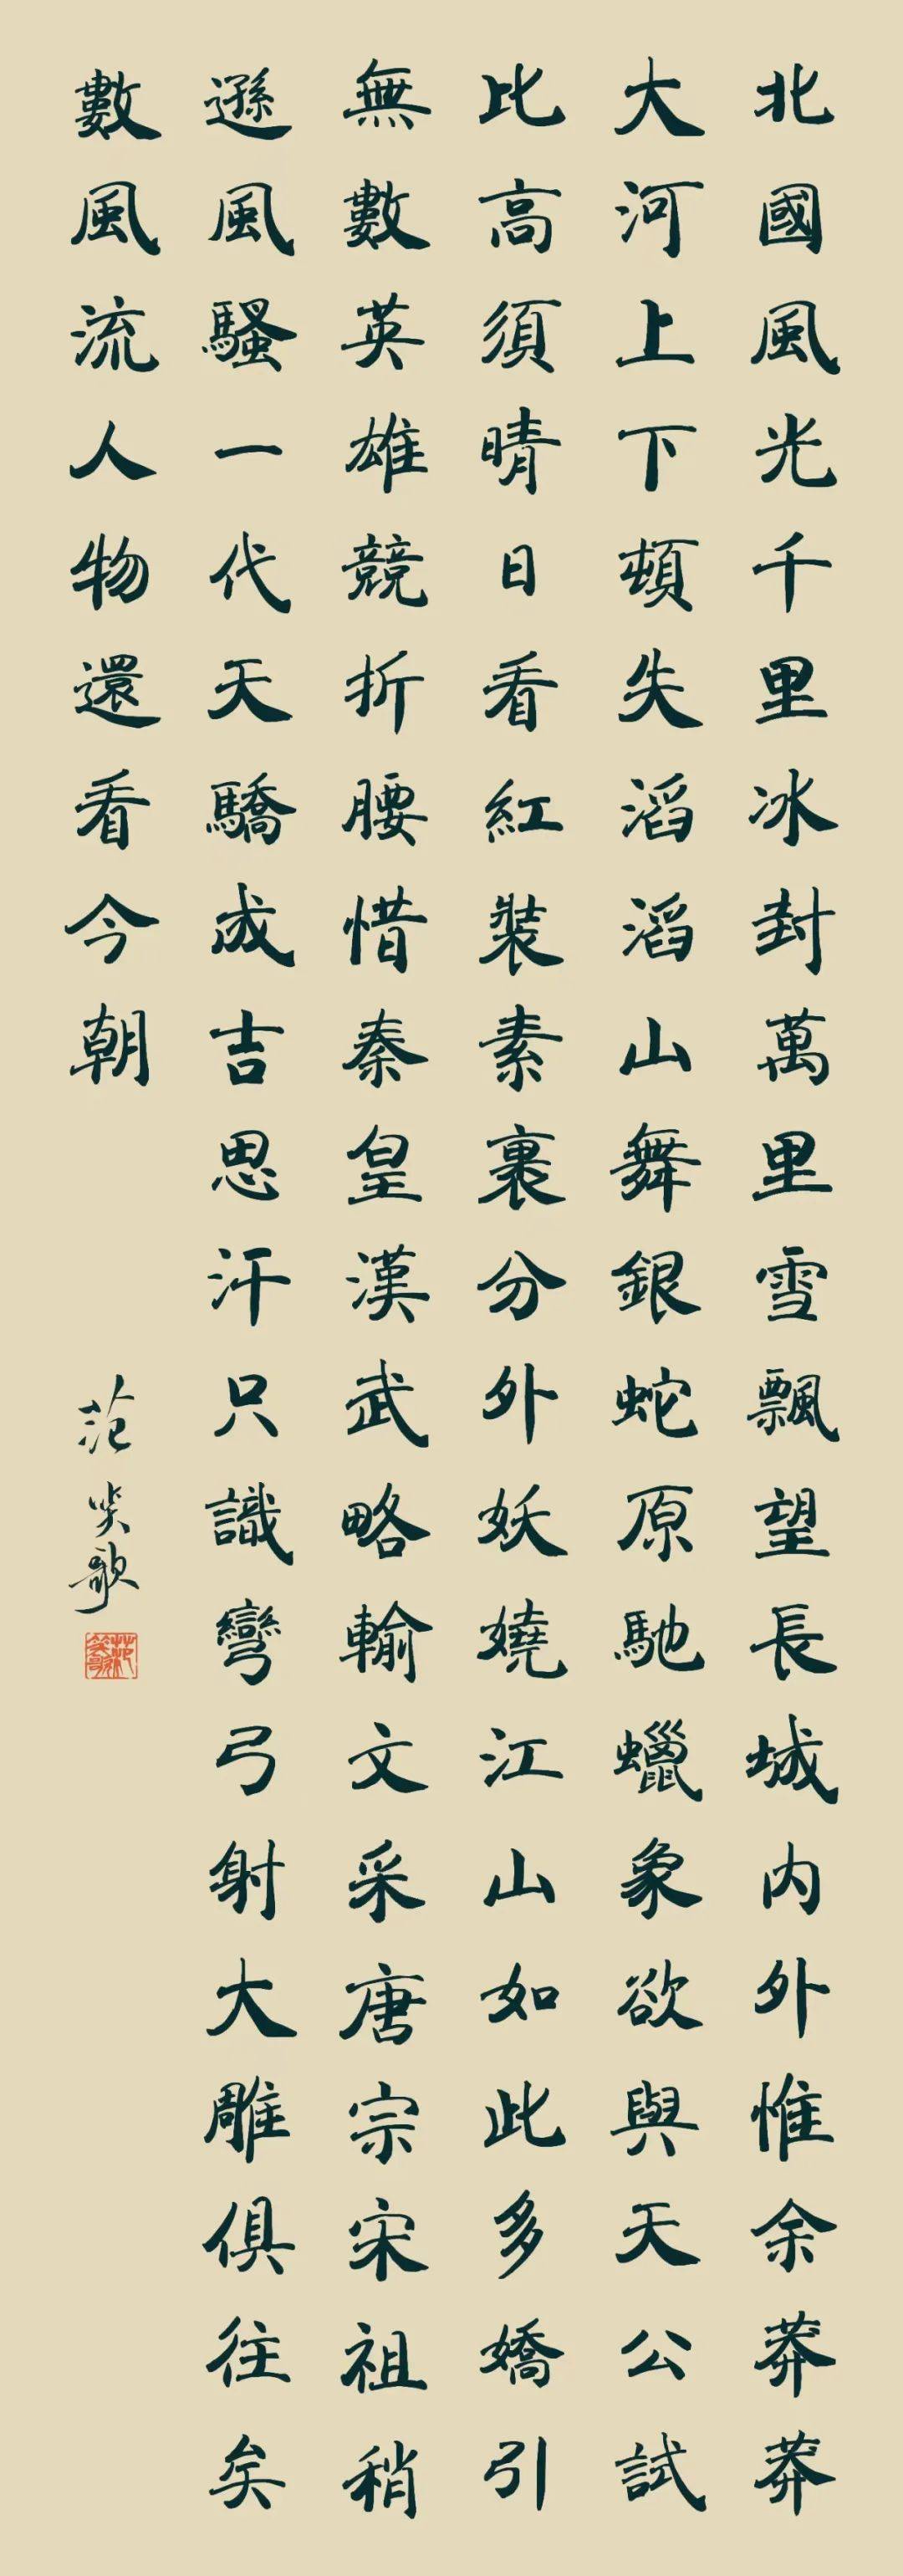 北國風光千里冰封萬里雪飄望長城内外惟余莽莽
大河上下頓失滔滔山舞銀蛇原馳蠟象欲與天公試
比高須晴日看紅裝素裹分外妖嬈江山如此多嬌引
無數英雄競折腰惜秦皇漢武略輸文采唐宗宋祖稍
遜風騷一代天驕成吉思汗只識彎弓射大雕俱往矣
數風流人物還看今朝
范笑歌
范笑歌